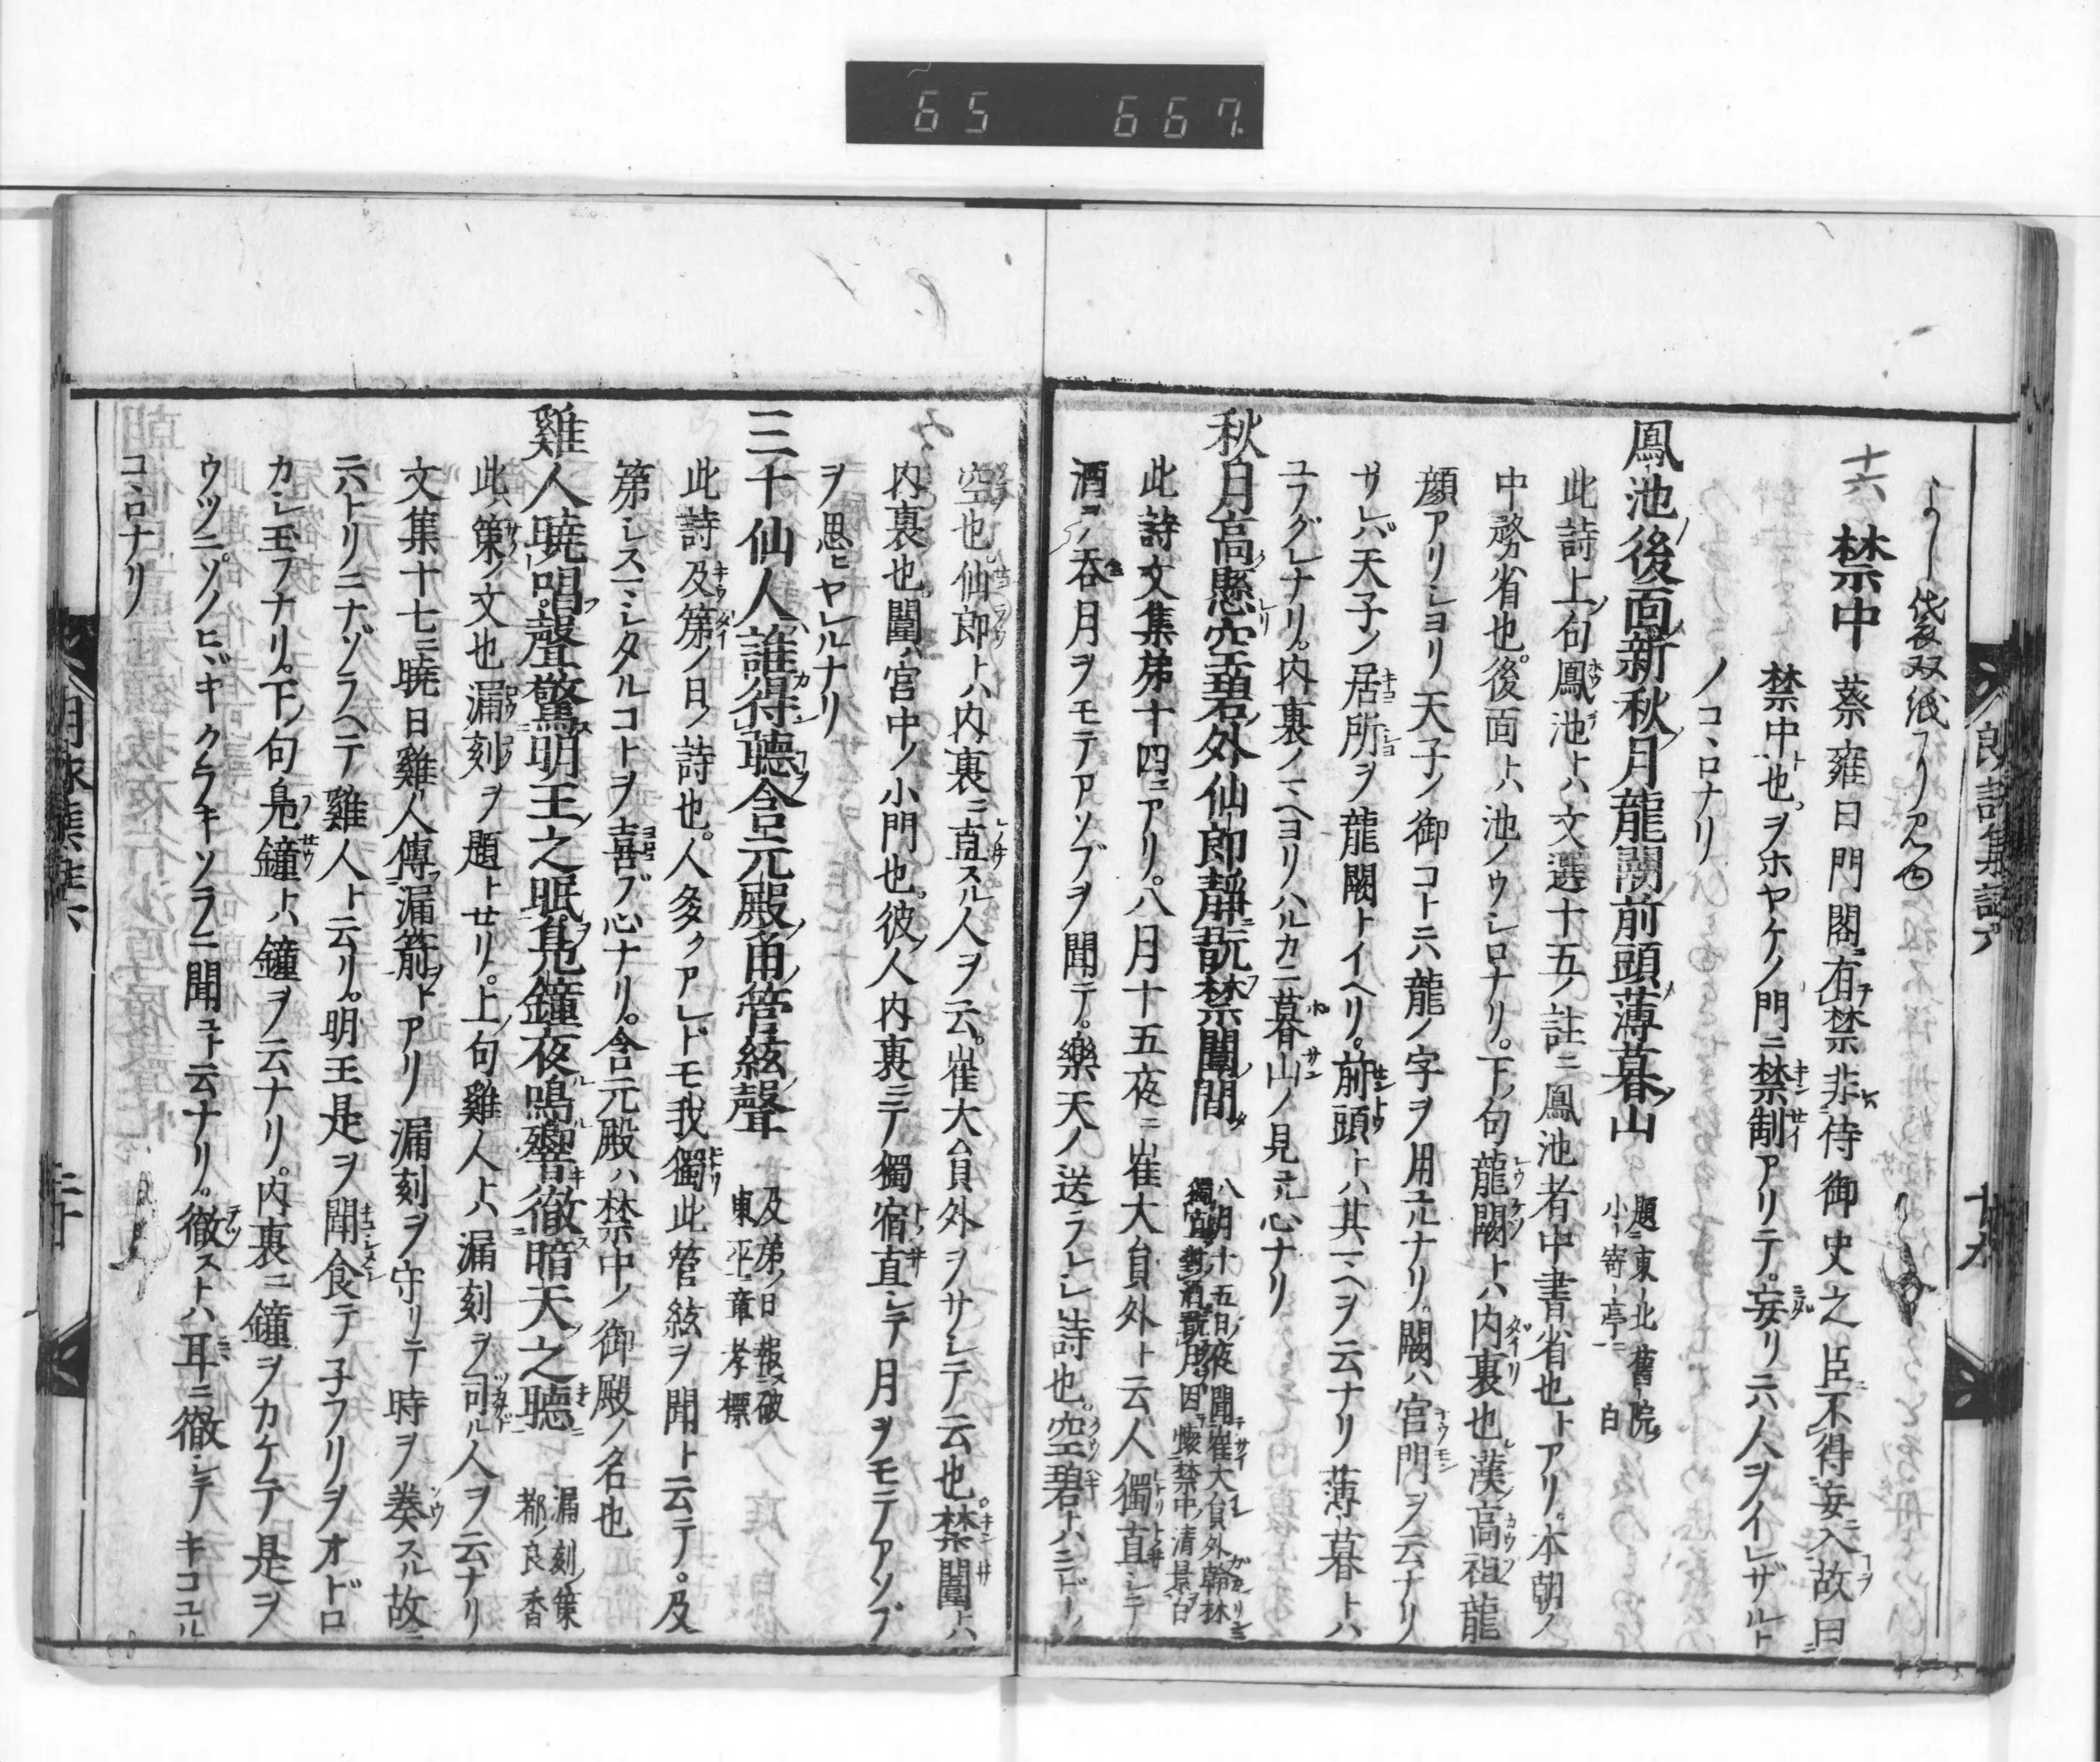 65 667
朗詠集註
よし袋双紙
十六
禁中 蔡雍曰門閣有禁非侍御史之臣不得妄入故曰
禁中也。ヲホヤケノ門ニ禁制アリテ。妄リニハ人ヲイレザルト
ノコヽロナリ
鳳池後面新秋月龍闕前頭薄暮山 題東北舊院小寄亭 白
此詩上句鳳池トハ文選十五ノ註ニ鳳池者中書省也トアリ。本朝ノ
中務省也。後面トハ池ノウシロナリ。下ノ句龍闕トハ内裏也漢高祖龍
顔アリシヨリ天子ノ御コトニハ龍ノ字ヲ用ユルナリ。闕ハ宮門ヲ云ナリ
サレバ天子ノ居所ヲ龍闕トイヘリ。前頭トハ其マヘヲ云ナリ薄暮トハ
ユフグレナリ。内裏ノマヘヨリハルカニ暮山ノ見ユル心ナリ
秋月高懸空碧外仙郎靜翫禁闈間 八月十五日夜聞崔大員外翰林獨直對酒翫月因懷禁中清景 白
此詩文集第十四ニアリ。八月十五夜ニ崔大員外ト云人獨直シテ
酒ヲ呑月ヲモテアソブヲ聞テ。樂天ノ送ラレシ詩也。空碧トハミドリノ
空也。仙郎トハ内裏ニ直スル人ヲ云。崔大員外ヲサシテ云也。禁闈トハ
内裏也。闈ハ宮中ノ小門也。彼人内裏ニテ獨宿直シテ月ヲモテアソブ
ヲ思ヒヤレルナリ
三千仙人誰得聽含元殿角管絃聲 及第ノ日報破東平章 孝標
此詩及第ノ日ノ詩也。人多クアレドモ我獨此管絃ヲ聞ト云テ。及
第シスマシタルコトヲ喜ブ心ナリ。含元殿ハ禁中ノ御殿ノ名也
雞人曉唱聲驚明王之眠鳧鐘夜鳴響徹暗天之聽 漏刻策 都良香
此ハ策ノ文也漏刻ヲ題トセリ。上句雞人トハ漏刻ヲ司ル人ヲ云ナリ
文集十七ニ曉日雞人傳漏箭トアリ漏刻ヲ守リテ時ヲ奏スル故ニ
ニハトリニナゾラヘテ雞人ト云リ。明王是ヲ聞食テ子フリヲオドロ
カシ玉フナリ。下ノ句鳧鐘トハ鐘ヲノ云ナリ。内裏ニ鐘ヲカケテ是ヲ
ウツニ。ソノヒヾキクラキソラニ聞ユト云ナリ。徹ストハ耳ニ徹シテキコユル
コヽロナリ